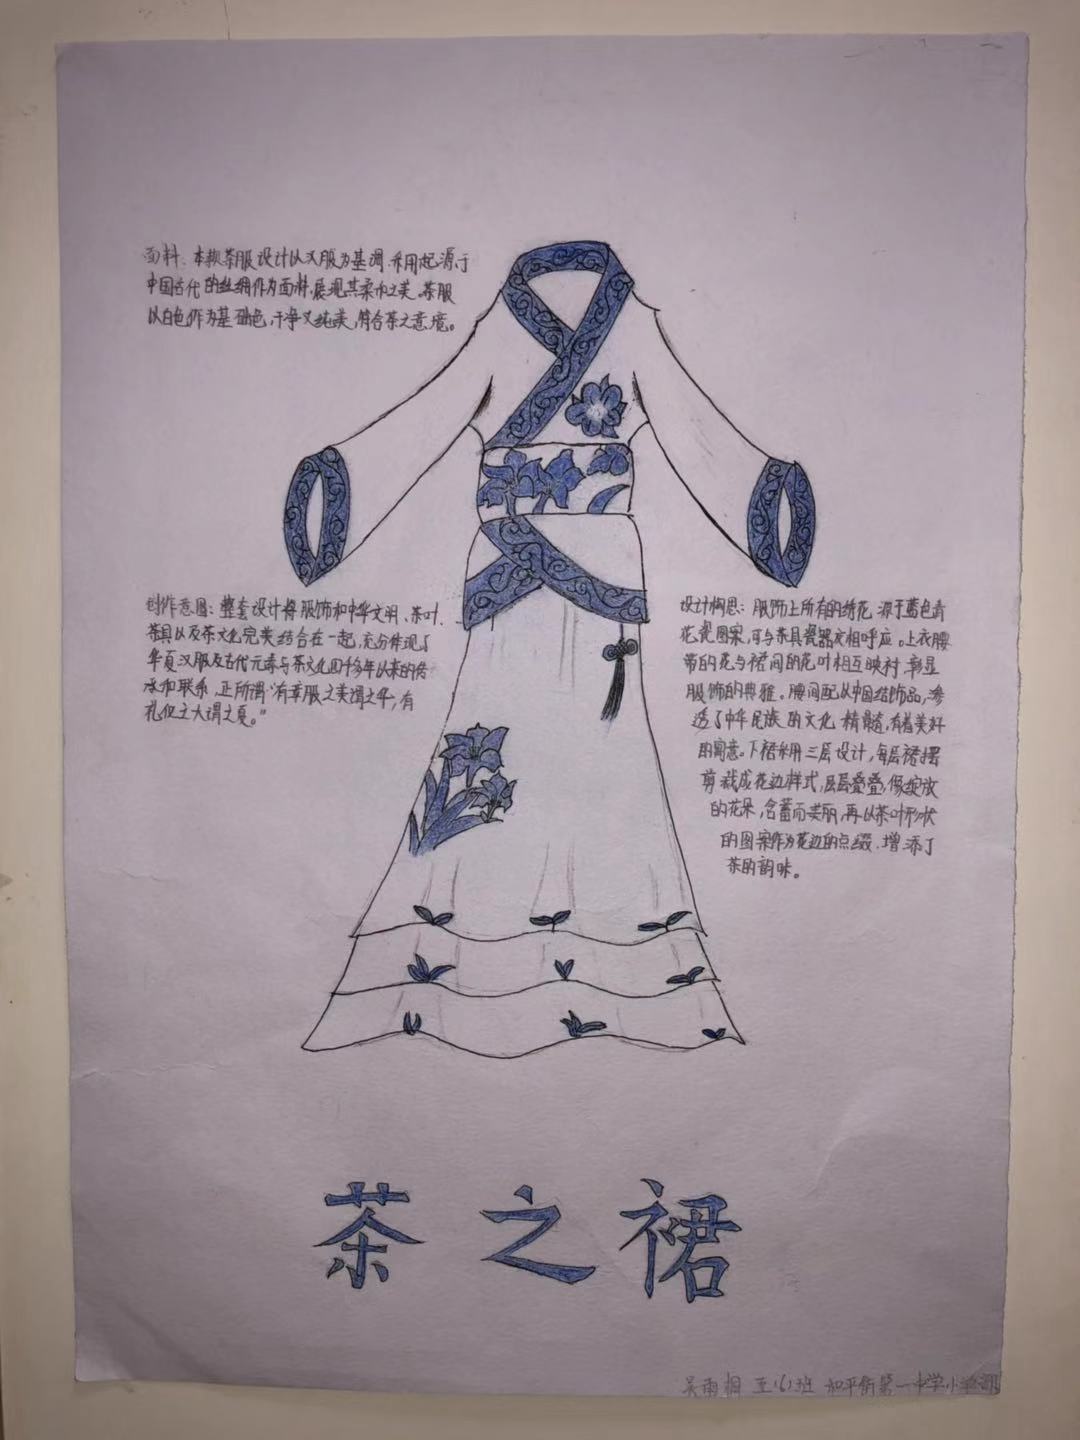 面料：本款茶服设计以汉服为基调.采用起源于
中国古代的丝绸作为面料，展现其柔和之美。茶服
以白色作为基础色，干净又纯美，符合茶之意境。
创作意图：整套设计将服饰和中华文明、茶叶、
茶具以及茶文化完美结合在一起，充分体现了
华夏汉服及古代元素与茶文化四千多年以来的传
承和联系，正所谓“有章服之美谓之华，有
礼仪之大谓之夏。”
设计构思：服饰上所有的绣花，源于蓝色青
花瓷图案，可与茶具瓷器交相呼应。上衣腰
带的花与裙间的花叶相互映衬，彰显
服饰的典雅。腰间配以中国结饰品，渗
透了中华民族的文化精髓，有着美好
的寓意。下裙采用三层设计，每层裙摆
剪裁成花边样式，层层叠叠，像绽放
的花朵，含蓄而美丽，再以茶叶形状
的图案作为花边的点缀.增添了
茶的韵味。
茶之裙
吴雨桐 五(6)班 和平街第一中学小学部